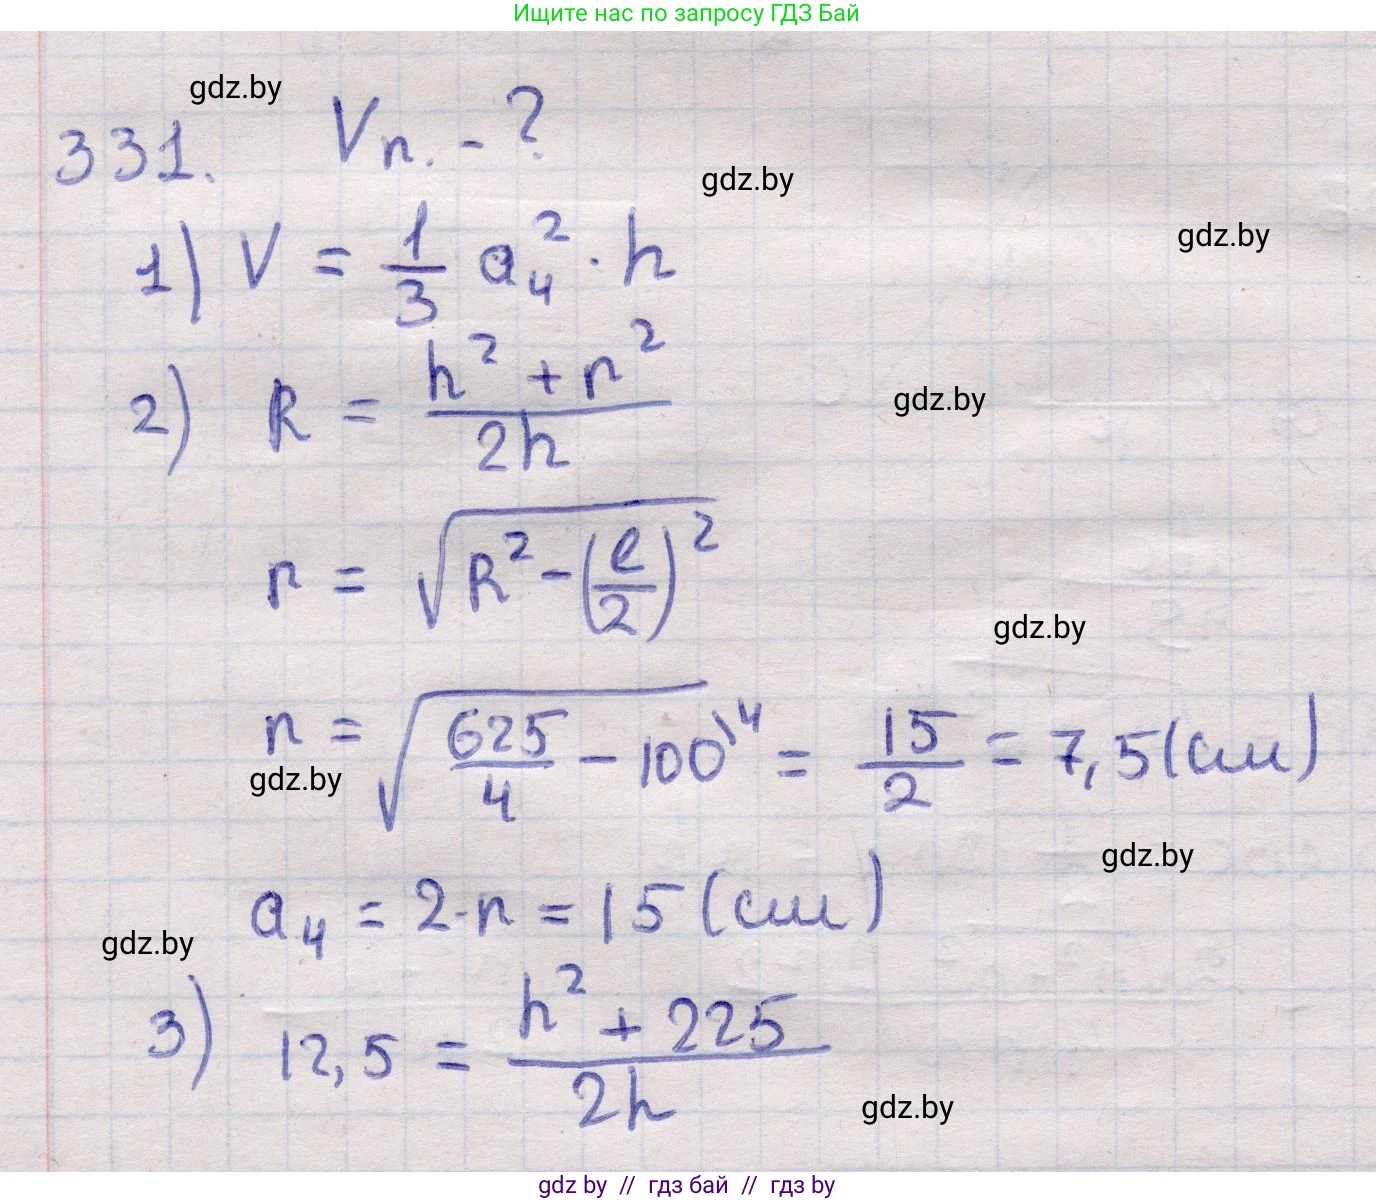 Ищите нас по запросу ГДЗ Бай
gdz.by
331. Vп. - ?
gdz.by
gdz.by
1) V = 1/3 a₄² · h
2) R = (h² + r²)/2h
gdz.by
r = √(R² - (l/2)²)
gdz.by
r = √(625/4 - 100\4) = 15/2 = 7,5 (см)
gdz.by
gdz.by
a₄ = 2·r = 15 (см)
gdz.by
3) 12,5 = (h² + 225)/2h
gdz.by
gdz by // гдз бай // гдз by